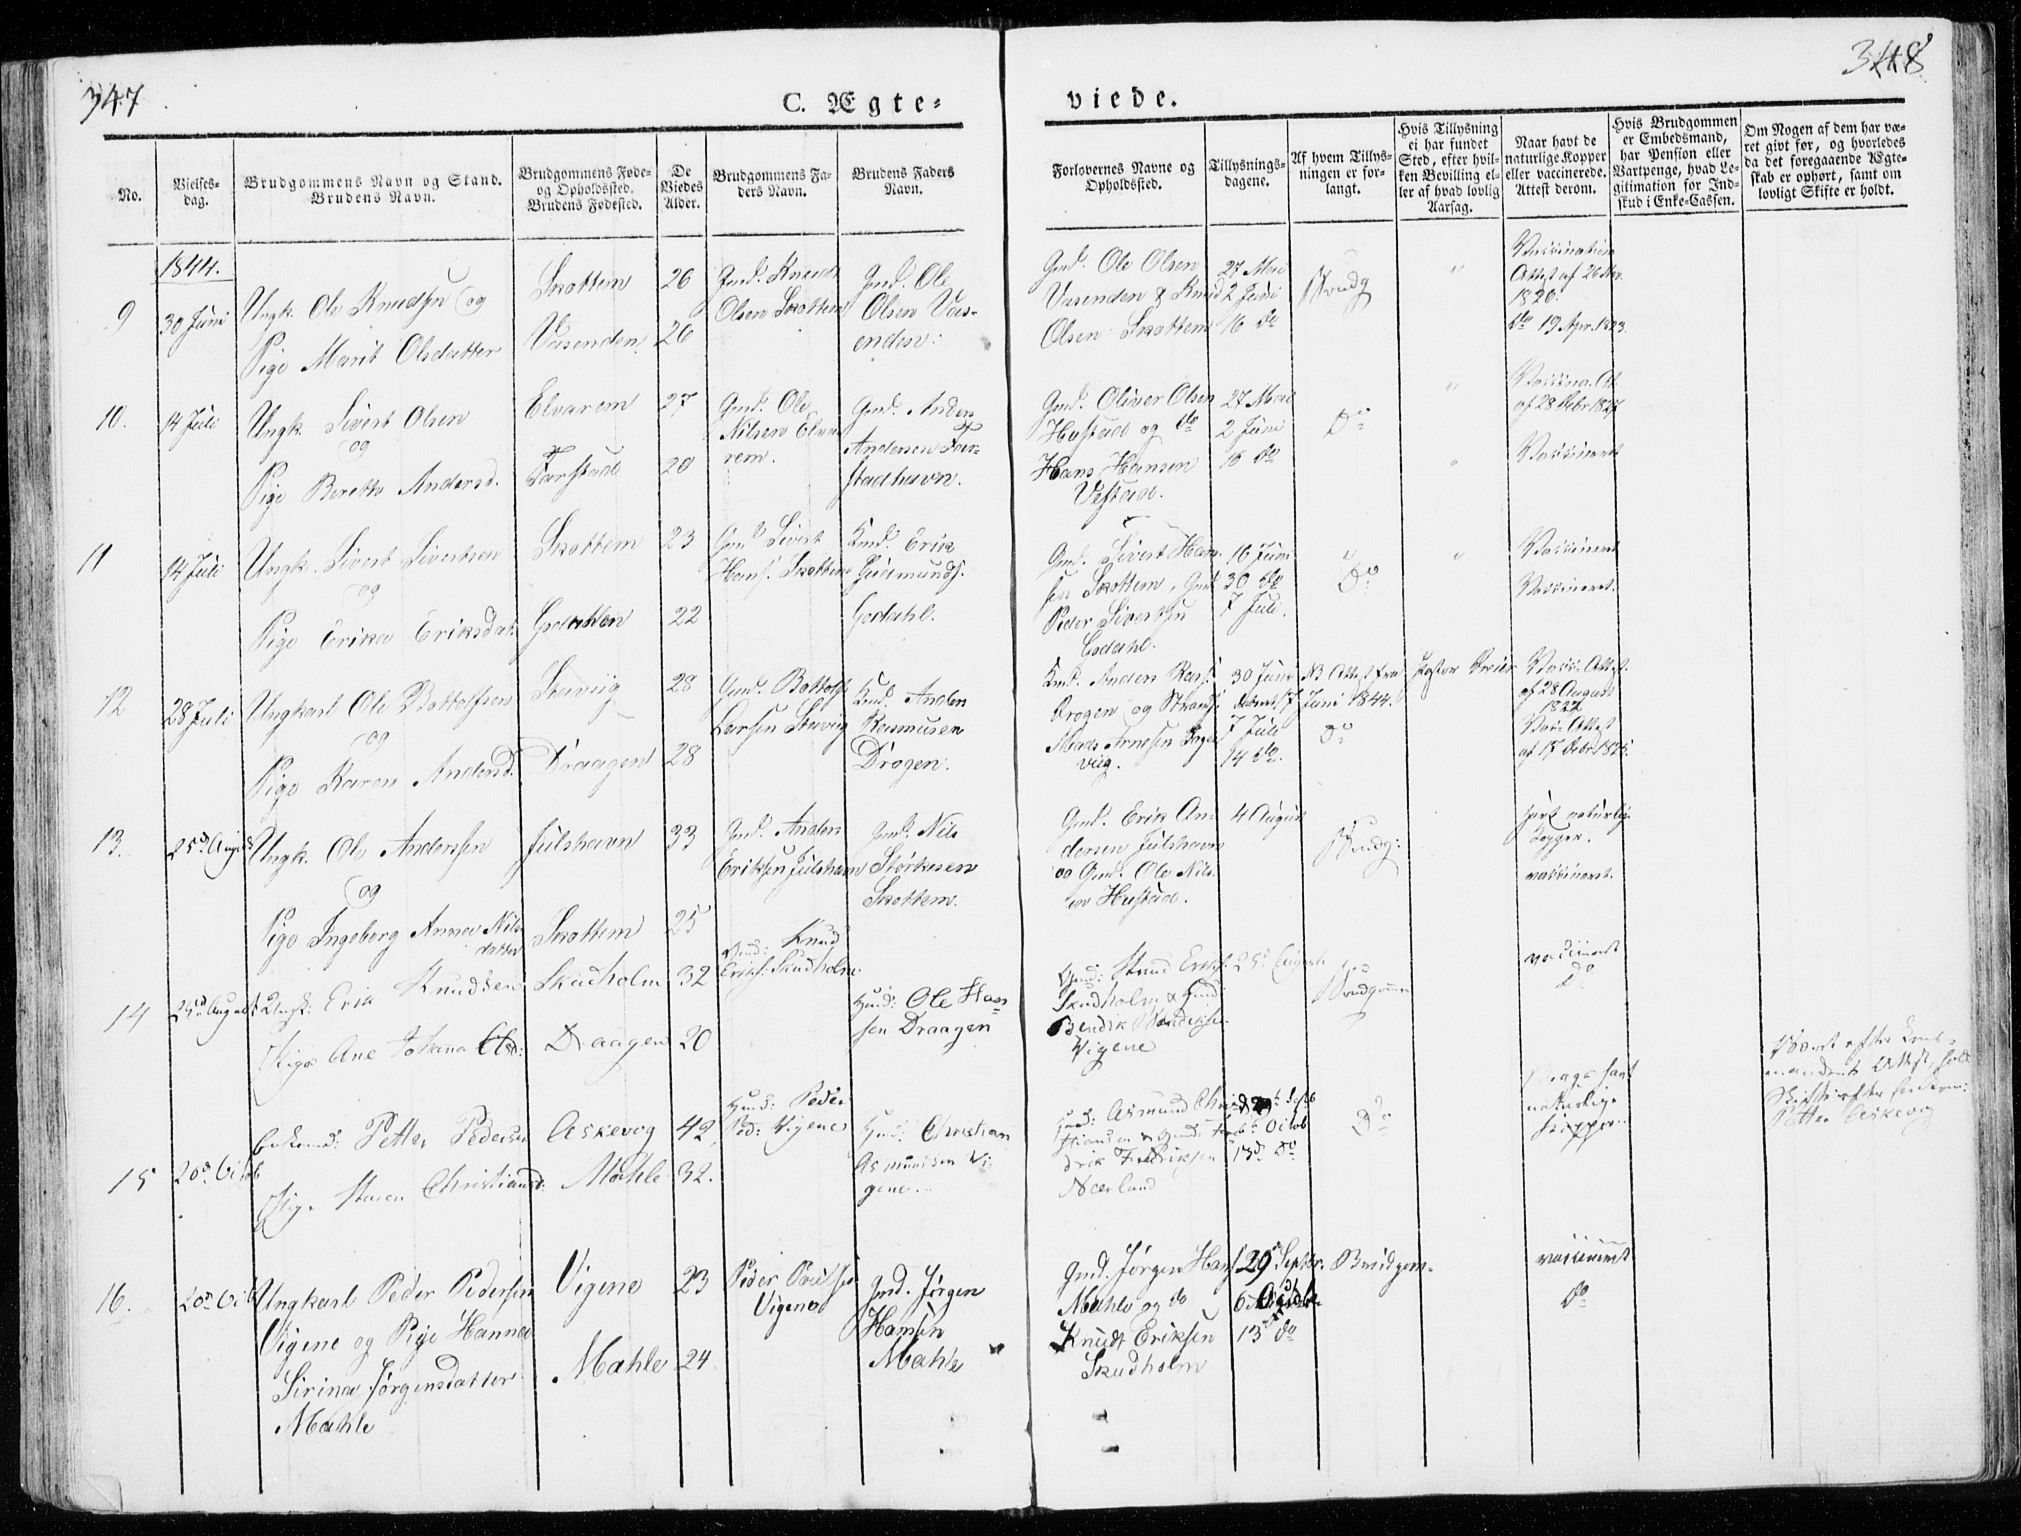 347
348
C. Ægte-
viede.
No.
Vielses-
dag.
Brudgommens Navn og Stand.
Brudens Navn.
Brudgommens Føde-
og Opholdssted.
Brudens Fødested.
De
Viedes
Alder.
Brudgommens Fa-
ders Navn.
Brudens Faders
Navn.
Forlovernes Navne og
Opholdssted.
Tillysnings-
dagene.
Af hvem Tillys-
ningen er for-
langt.
Hvis Tillysning
ei har fundet
Sted, efter hvil-
ken Bevilling el-
ler af hvad lovlig
Aarsag.
Naar havt de
naturlige Kopper
eller vaccinerede.
Attest derom.
Hvis Brudgommen
er Embedsmand,
har Pension eller
Vartpenge, hvad Le-
gitimation for Ind-
skud i Enke-Cassen.
Om Nogen af dem har væ-
ret givt før, og hvorledes
da det foregaaende Ægte-
skab er ophørt, samt om
lovligt Skifte er holdt.
1844.
9
30 Juni
Ungk. Ole Knudsen og
Pige Marit Olsdatter
Skottem
Vasenden
26
26
Gmd. Knud
Olsen Skottem
Gmd. Ole
Olsen Vas-
enden.
Gmd. Ole Olsen
Vasenden & Knud
Olsen Skottem
27 Mai
2 Juni
16 do
Brudg
"
Vaccination
Attest af 26
1820.
do 19 Apr. 1823.
10.
14 Juli
Ungk. Sivert Olsen
og
Pige Berette Andersd.
Elvarem
Farstad
27
20
Gmd. Ole
Nilsen Elva-
rem.
Gmd. Anders
Andersen Far-
stadhavn.
Gmd. Oliver Olsen
Hustad og do
Hans Hansen
Vestad.
27 Mai
2 Juni
16 do
Do
"
Vaccina. Att.
af 28 Febr 1827
Vaccineret
11
14 Juli
Ungk. Sivert Sivertsen
og
Pige Erika Eriksdat.
Skottem
23
22
Gmd Sivert
Hans. Skottem
Gmd. Erik
Gudmunds.
Godahl.
Gmd. Sivert Han-
sen Skottem, Gmd
Peder Sivertsen
Godahl.
16 Juni
30 do
7 Juli.
Do
"
Vaccineret
Vaccineret.
12
28 Juli
Ungkarl Ole Bottolfsen
og
Pige Karen Andersd.
Stavig
Draagen
28
28
Gmd. Bottolf
Larsen Stavig
Gmd. Anders
Rasmusen
Drogen.
Gmd. Anders Ras.
Drogen og
Mads Arnesen Inger
vig.
30 Juni
7 Juli
14 do.
NB Attest fra Pastor
Juni 1844.
Do
Vacc. Attest
af 28 August
1822
Vac. Attest
af 15 Febr 1825.
13.
25d August
Ungk. Ole Andersen
og
Pige Ingeborg Anna Nils-
datter
Julshavn
Skottem
33
25
Gmd. Anders
Eriksen Julshavn
Gmd. Nils
Størkesen
Skottem.
Gmd. Erik An-
dersen Julshavn
og Gmd. Ole Nils-
en Hustad.
4 August
Brudg.
havt naturlig
Kopper.
vaccineret.
14
25d August
Ungk: Erik Knudsen
Pige Ane Johana Olsd:
Skudholm
Draagen
32
20
Gmd: Knud
Eriks: Skudholm
Gmd: Ole Han-
sen Draagen
Gmd: Knud Eriks:
Skudholm & Gmd
Bendik Bendiksen
Vigene
25d August
Brudgommen
vaccineret
Do
15
20d Octob
Enkemd: Petter Pedersen
Pige Karen Christiansd:
Askevog
Mahle
42
32.
Gmd: Peder
Ped: Vigene
Gmd: Christian
Asmundsen Vi-
gene.
Gmd: Asmund Chri-
stiansen & Gmd: Fre-
drik Fredriksen
Nærland
29d Septb
6d Octob
13d Do
Do
Begge havt
naturlige
Kopper.
Viet efter Lens-
mandens Attest, holdt
Skifte efter
Petter Askevog
16.
20d Octob
Ungkarl Peder Pedersen
Vigene og Pige Hanna
Sirina Jørgensdatter
Mahle
Vigene
Mahle
23
24
Peder
Vigene
Gmd. Jørgen
Hansen
Mahle
Gmd. Jørgen Hans.
Mahle og do
Knudt Eriksen
Skudholm
29 Septbr.
6 Octobr
13 do
Brudgom.
vaccineret
do